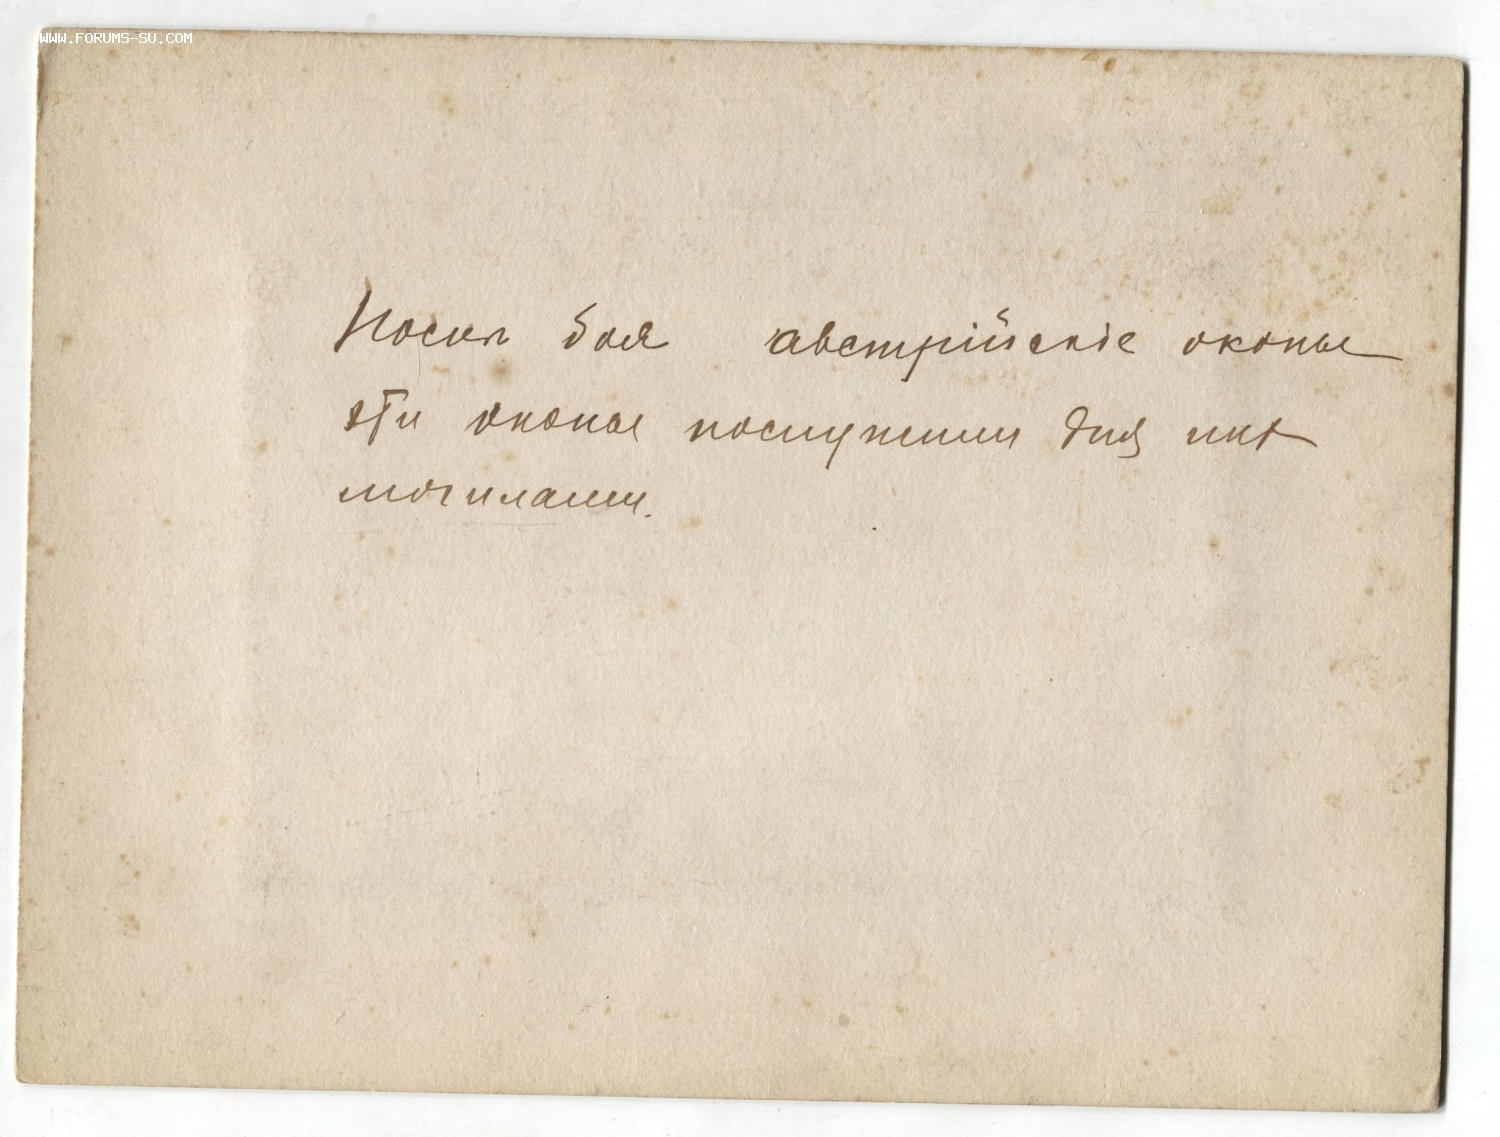 WWW.FORUMS-SU.COM
После боя австрійскіе окопы
эти окопы послужили для них
могилами.